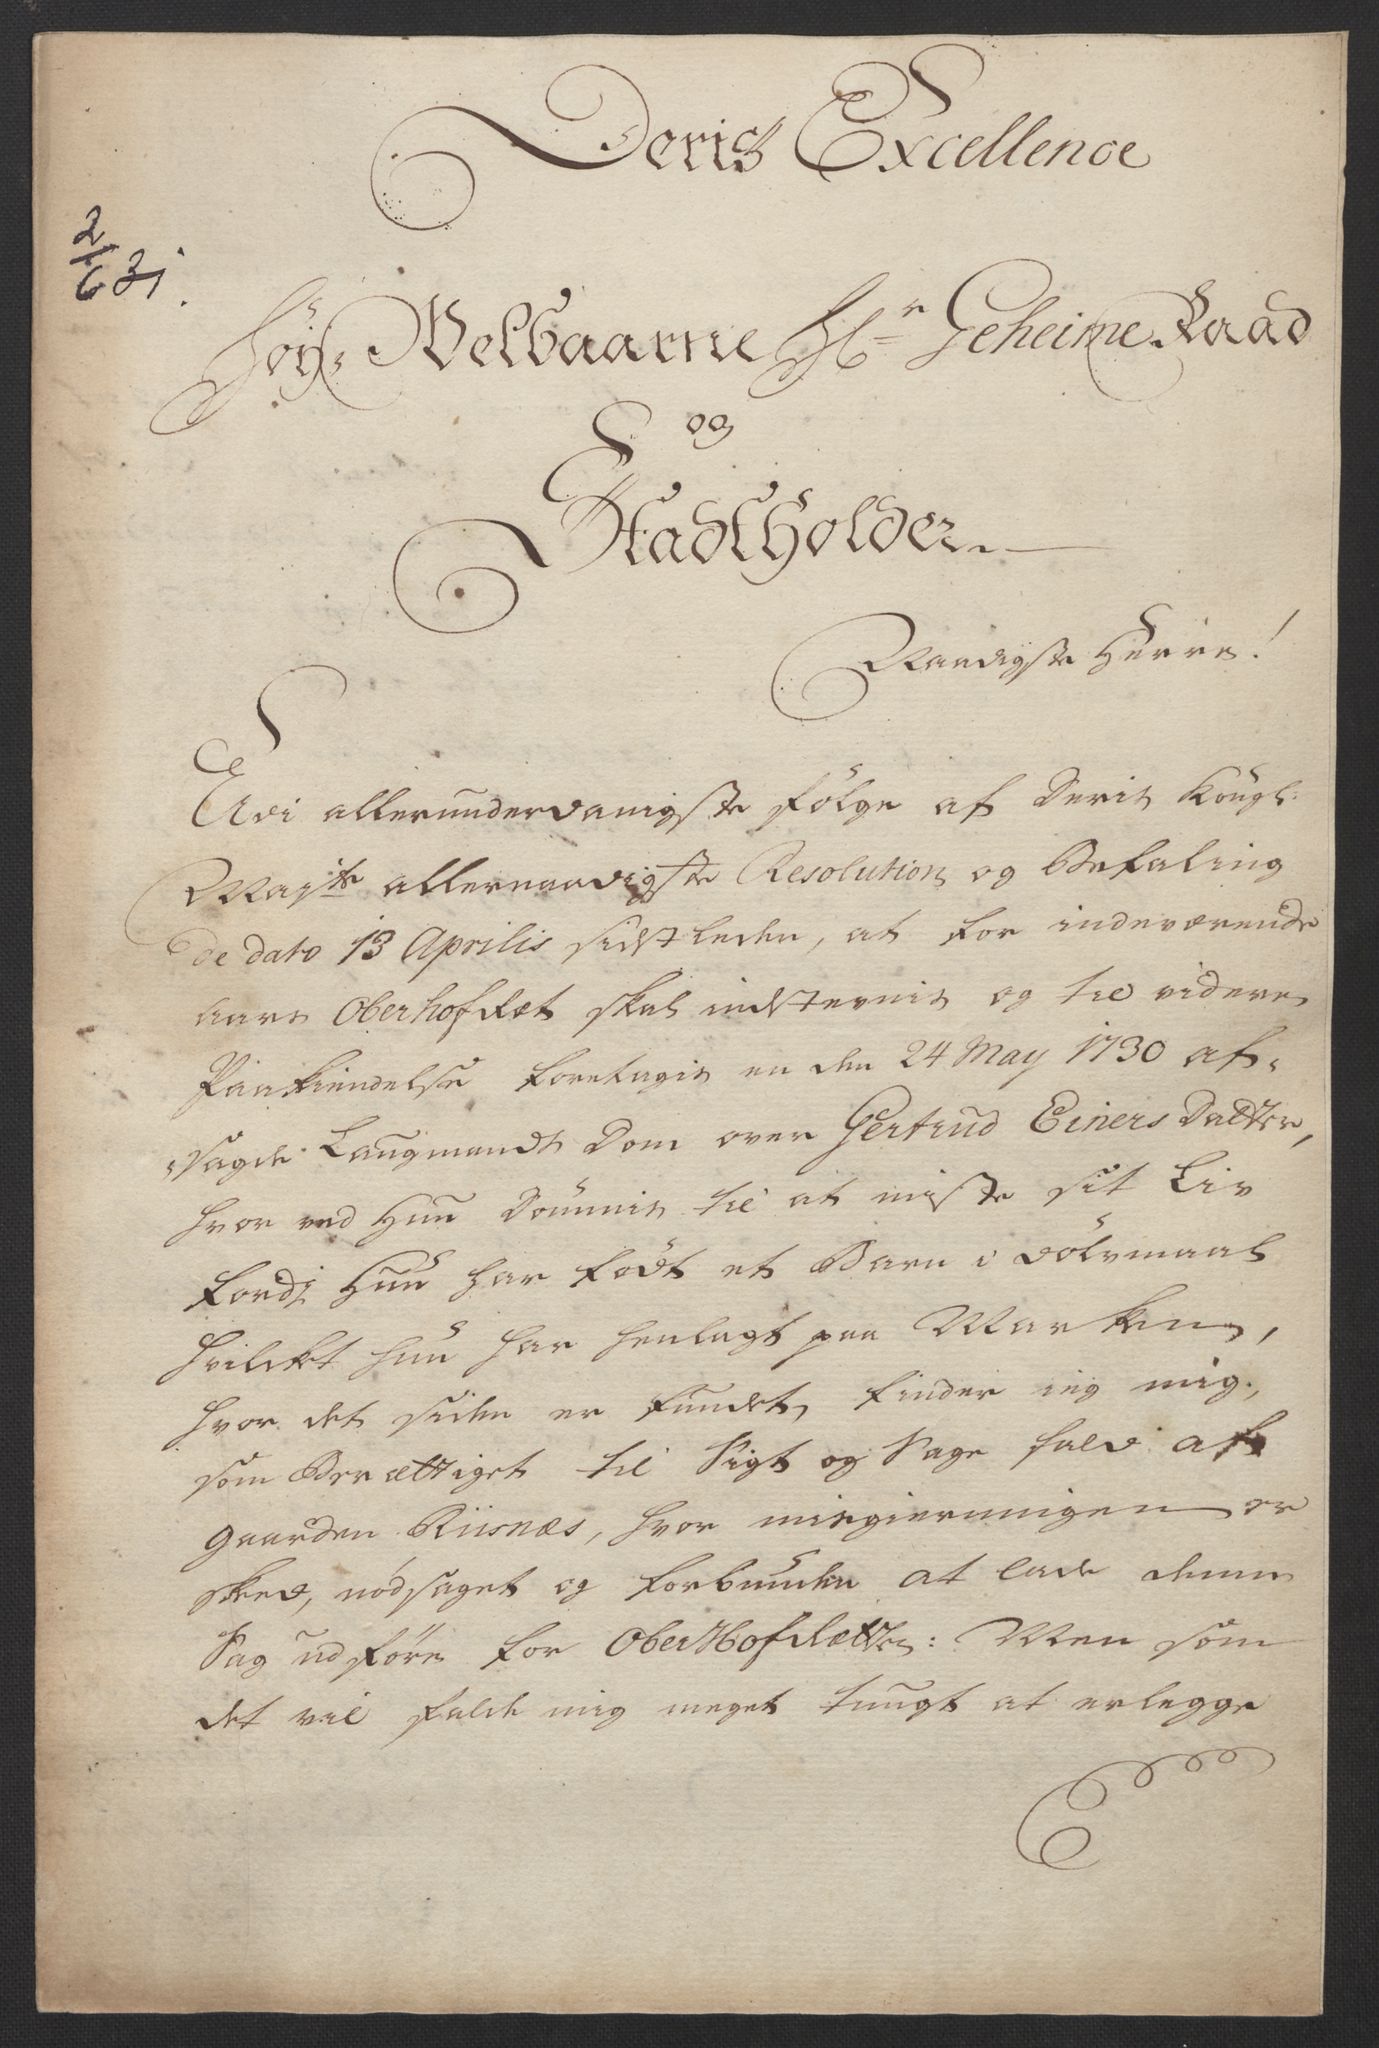 Deris Excellence
2/6 31.
Høy-Welbaarne Hr. Geheime Raad
og
Stadtholder
Naadigste Herre!
Udi allerunderdanigste følge af Deris Kongl:
Mayts allernaadigste Resolution og Befaling
de dato 13 Aprilis sidstleden, at for indeværende
aars OberhofRet skal indstevnis og til videre
Paakiendelse foretagis en den 24 May 1730 af-
sagde Laugmands Dom over Gertrud Einers Datter,
hvorved Hun Dömmis til at miste sit Liv
fordj Hun har födt et Barn i dölsmaal
hvilcket hun har henlagt paa Marken,
hvor det siden er fundet, finder ieg mig,
som Berættiget til Sigt og Sage fald af
gaarden Riisnæs, hvor misgierningen er
skeed, nödsaget og forbunden at lade denne
Sag udföre for OberHofRetten: Men som
det vil falde mig meget tungt at erlegge